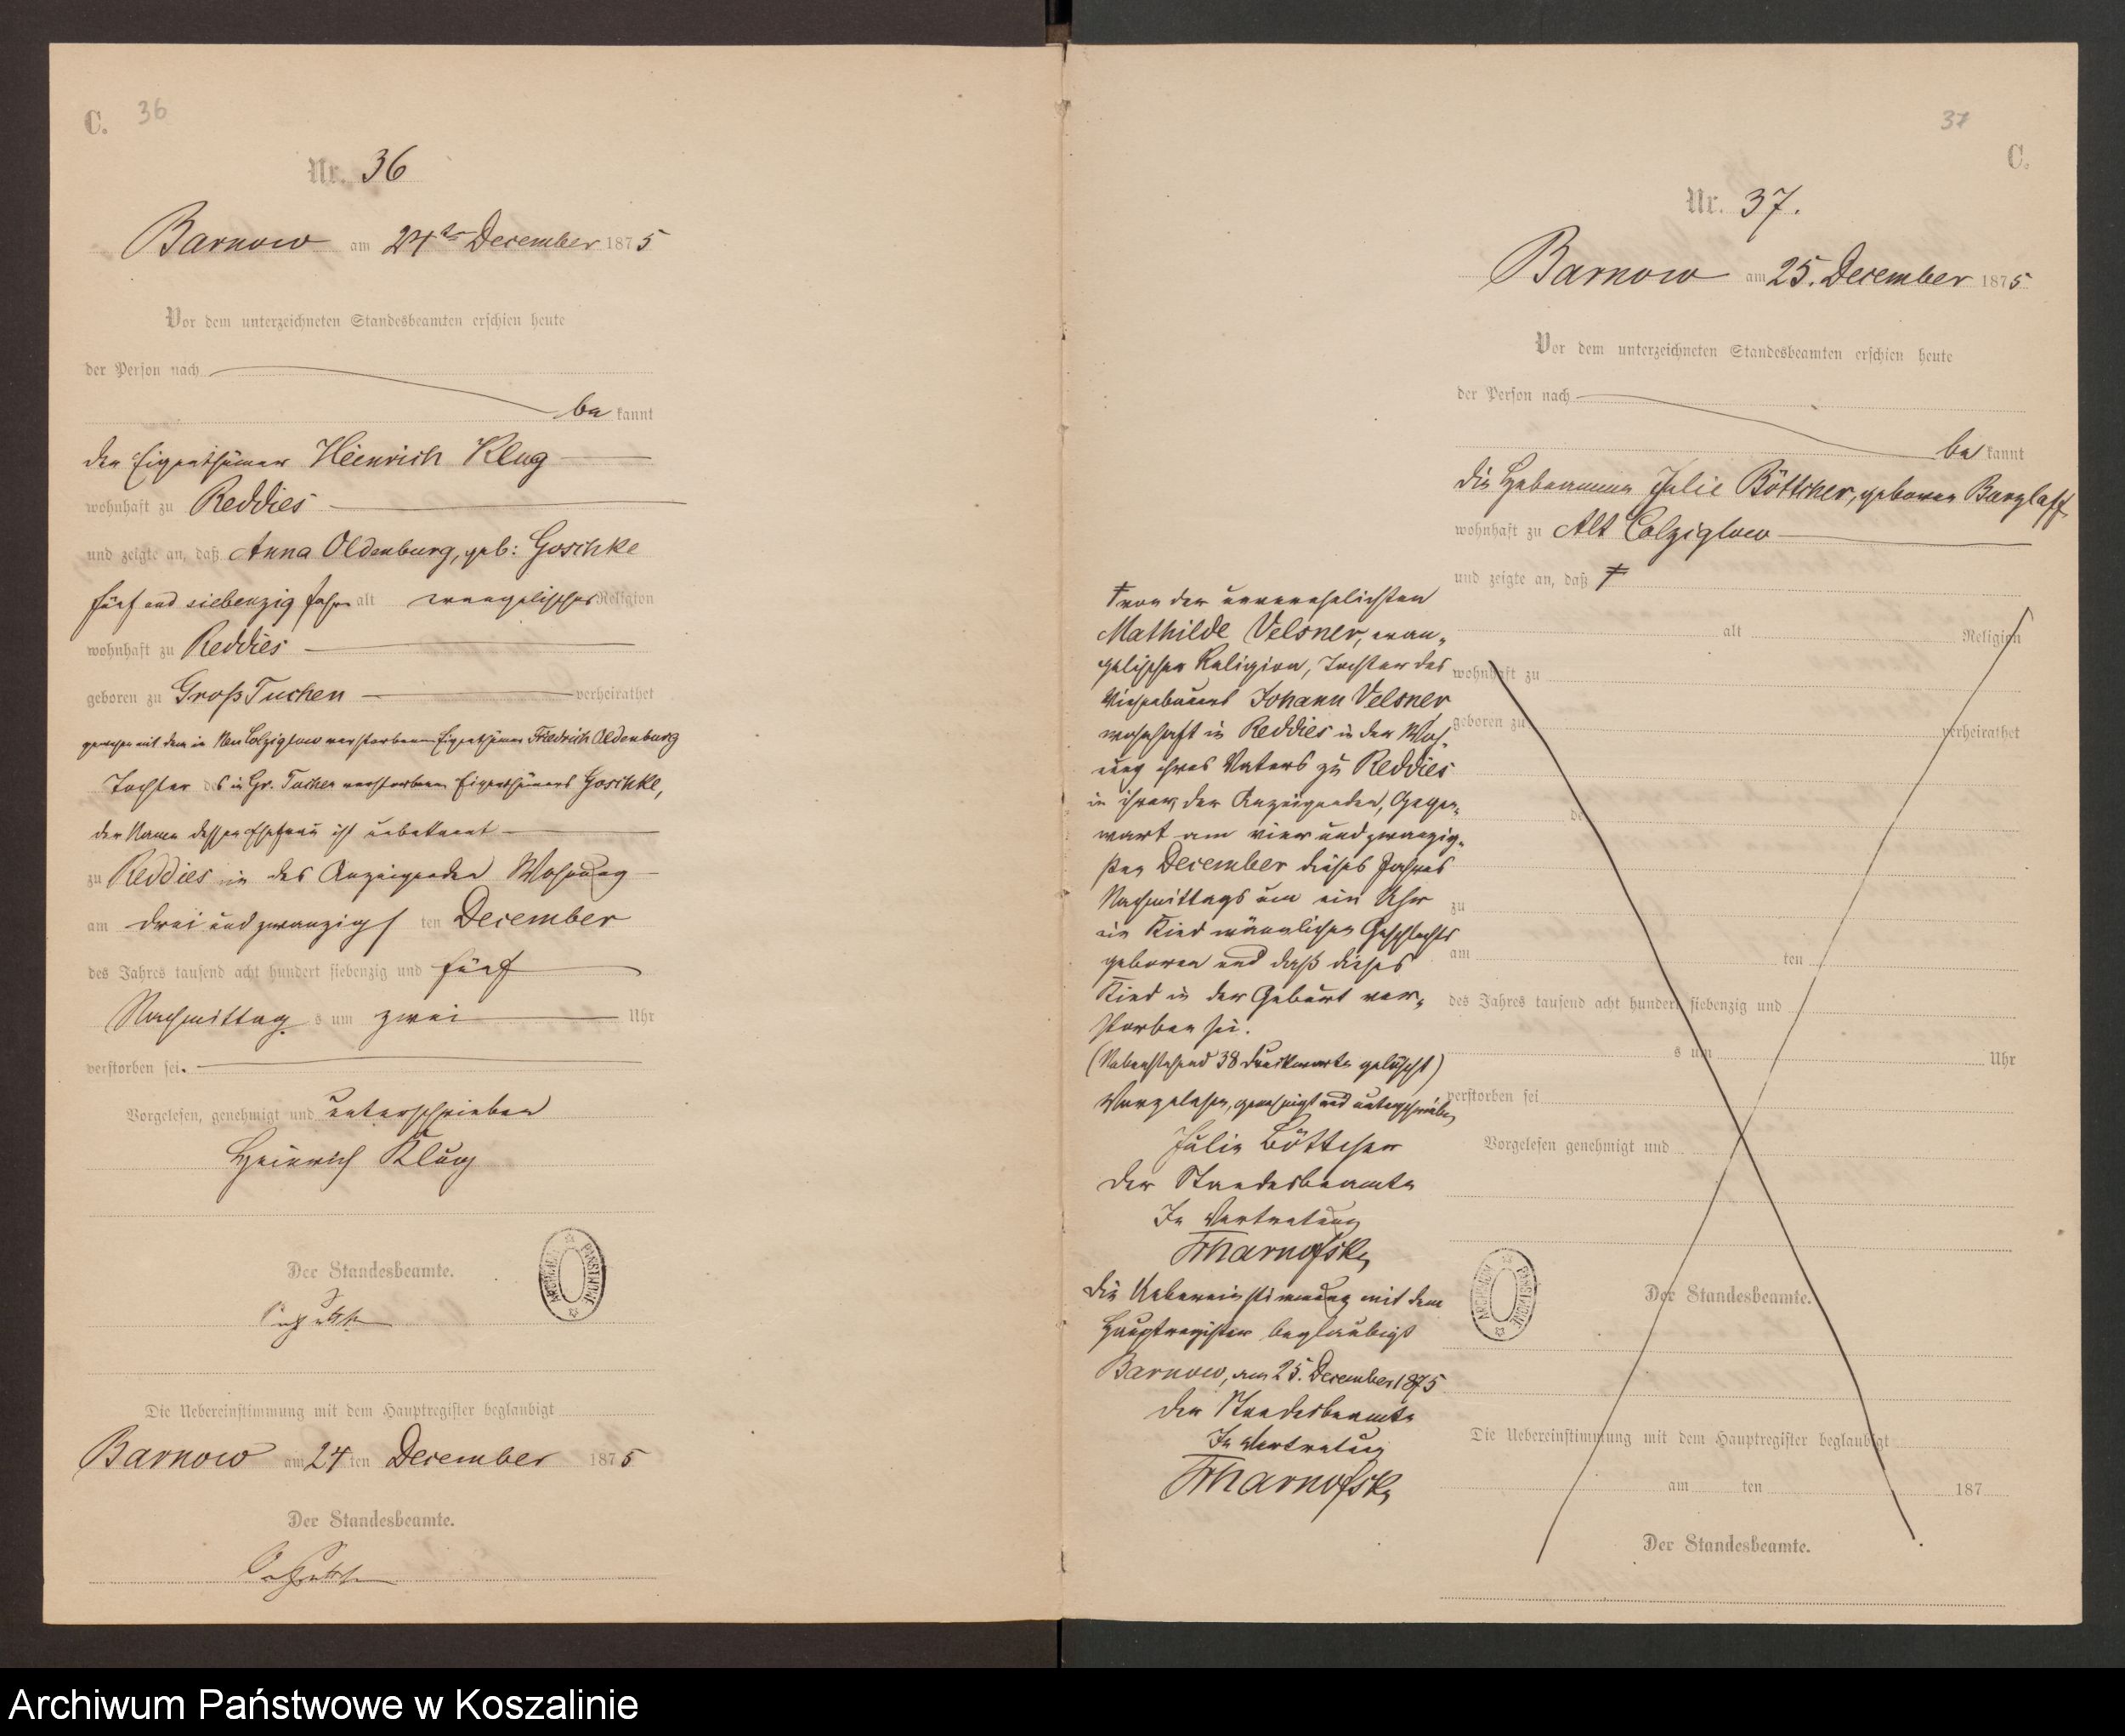 C. 36
Nr. 36
Barnow am 24ten December 1875
Vor dem unterzeichneten Standesbeamten erschien heute
der Person nach
be kannt
der Eigenthümer Heinrich Klug
wohnhaft zu Reddies
und zeigte an, daß Anna Oldenburg, geb: Goschke
fünf und siebenzig Jahre alt evangelischer Religion
wohnhaft zu Reddies
geboren zu Groß Tuchen verheirathet
gewesen mit dem in Neu Colziglow verstorbenen Eigenthümer Friedrich Oldenburg
Tochter des in Gr. Tuchen verstorbenen Eigenthümers Goschke,
der Name dessen Ehefrau ist unbekannt
zu Reddies in des Anzeigenden Wohnung
am drei und zwanzigs ten December
des Jahres tausend acht hundert siebenzig und fünf
Nachmittag s um zwei Uhr
verstorben sei.
Vorgelesen, genehmigt und unterschrieben
Heinrich Klug
Der Standesbeamte.
ARCHIWUM PAŃSTWOWE
Die Uebereinstimmung mit dem Hauptregister beglaubigt
Barnow am 24 ten December 1875
Der Standesbeamte.
37
C.
Nr. 37.
Barnow am 25. December 1875
Vor dem unterzeichneten Standesbeamten erschien heute
der Person nach
be kannt
die Hebeamme Julie Böttcher, geborene Barzlaff
wohnhaft zu Alt Colziglow
und zeigte an, daß †
† von der unverehelichten
Mathilde Velsner, evan-
gelischer Religion, Tochter des
Johann Velsner
wohnhaft in Reddies in der Woh-
nung ihres Vaters zu Reddies
in ihrer, der Anzeigenden, Gegen-
wart am vier und zwanzig-
sten December dieses Jahres
Nachmittags um ein Uhr
ein Kind männlichen Geschlechts
geboren und daß dieses
Kind in der Geburt ver-
storben sei.
(Nebenstehend 38 Druckworte gelöscht)
Vorgelesen, genehmigt und unterschrieben
Julie Böttcher
Der Standesbeamte
In Vertretung
Die Uebereinstimmung mit dem
Hauptregister beglaubigt
Barnow, am 25. December 1875
Der Standesbeamte
In Vertretung
alt Religion
wohnhaft zu
geboren zu verheirathet
de
zu
am ten
des Jahres tausend acht hundert siebenzig und
s um Uhr
verstorben sei
Vorgelesen genehmigt und
ARCHIWUM PAŃSTWOWE
Der Standesbeamte.
Die Uebereinstimmung mit dem Hauptregister beglaubigt
am ten 187
Der Standesbeamte.
Archiwum Państwowe w Koszalinie